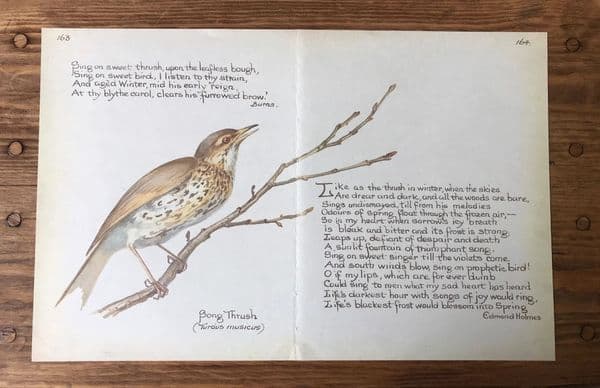 163
Sing on sweet thrush, upon the leafless bough,
Sing on sweet bird, I listen to thy strain,
And aged Winter, mid his early reign,
At thy blythe carol, clears his furrowed brow.'
Burns.
Song Thrush
(Turdus musicus)
164
Like as the thrush in winter, when the skies
Are drear and dark, and all the woods are bare,
Sings undismayed, till from his melodies
Odours of Spring float through the frozen air,—
So in my heart when sorrow's icy breath
Is bleak and bitter and its frost is strong,
Leaps up, defiant of despair and death
A sunlit fountain of triumphant song.
Sing on sweet singer till the violets come
And south winds blow, sing on prophetic bird!
O if my lips, which are for ever dumb
Could sing to men what my sad heart has heard
Life's darkest hour with songs of joy would ring,
Life's blackest frost would blossom into Spring
Edmond Holmes